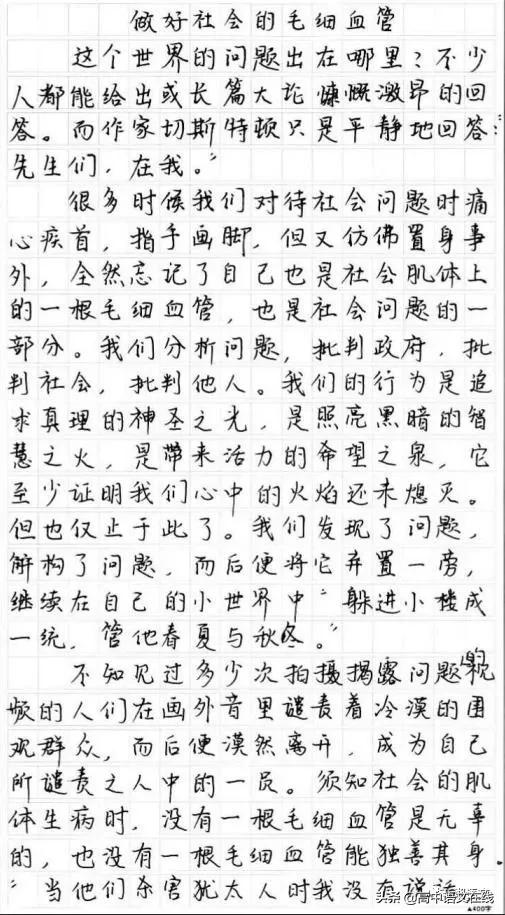 做好社会的毛细血管
这个世界的问题出在哪里？不少
人都能给出或长篇大论慷慨激昂的回
答。而作家切斯特顿只是平静地回答：“
先生们，在我。”
很多时候我们对待社会问题时痛
心疾首，指手画脚，但又仿佛置身事
外，全然忘记了自己也是社会肌体上
的一根毛细血管，也是社会问题的一
部分。我们分析问题，批判政府，批
判社会，批判他人。我们的行为是追
求真理的神圣之光，是照亮黑暗的智
慧之火，是带来活力的希望之泉，它
至少证明我们心中的火焰还未熄灭。
但也仅止于此了。我们发现了问题，
解构了问题，而后便将它弃置一旁，
继续在自己的小世界中“躲进小楼成
一统，管他春夏与秋冬。”
不知见过多少次拍摄揭露问题的视
频的人们在画外音里谴责着冷漠的围
观群众，而后便漠然离开，成为自己
所谴责之人中的一员。须知社会的肌
体生病时，没有一根毛细血管是无辜
的，也没有一根毛细血管能独善其身。
“当他们杀害犹太人时我没有说话
头条@高中语文在线
▲400字